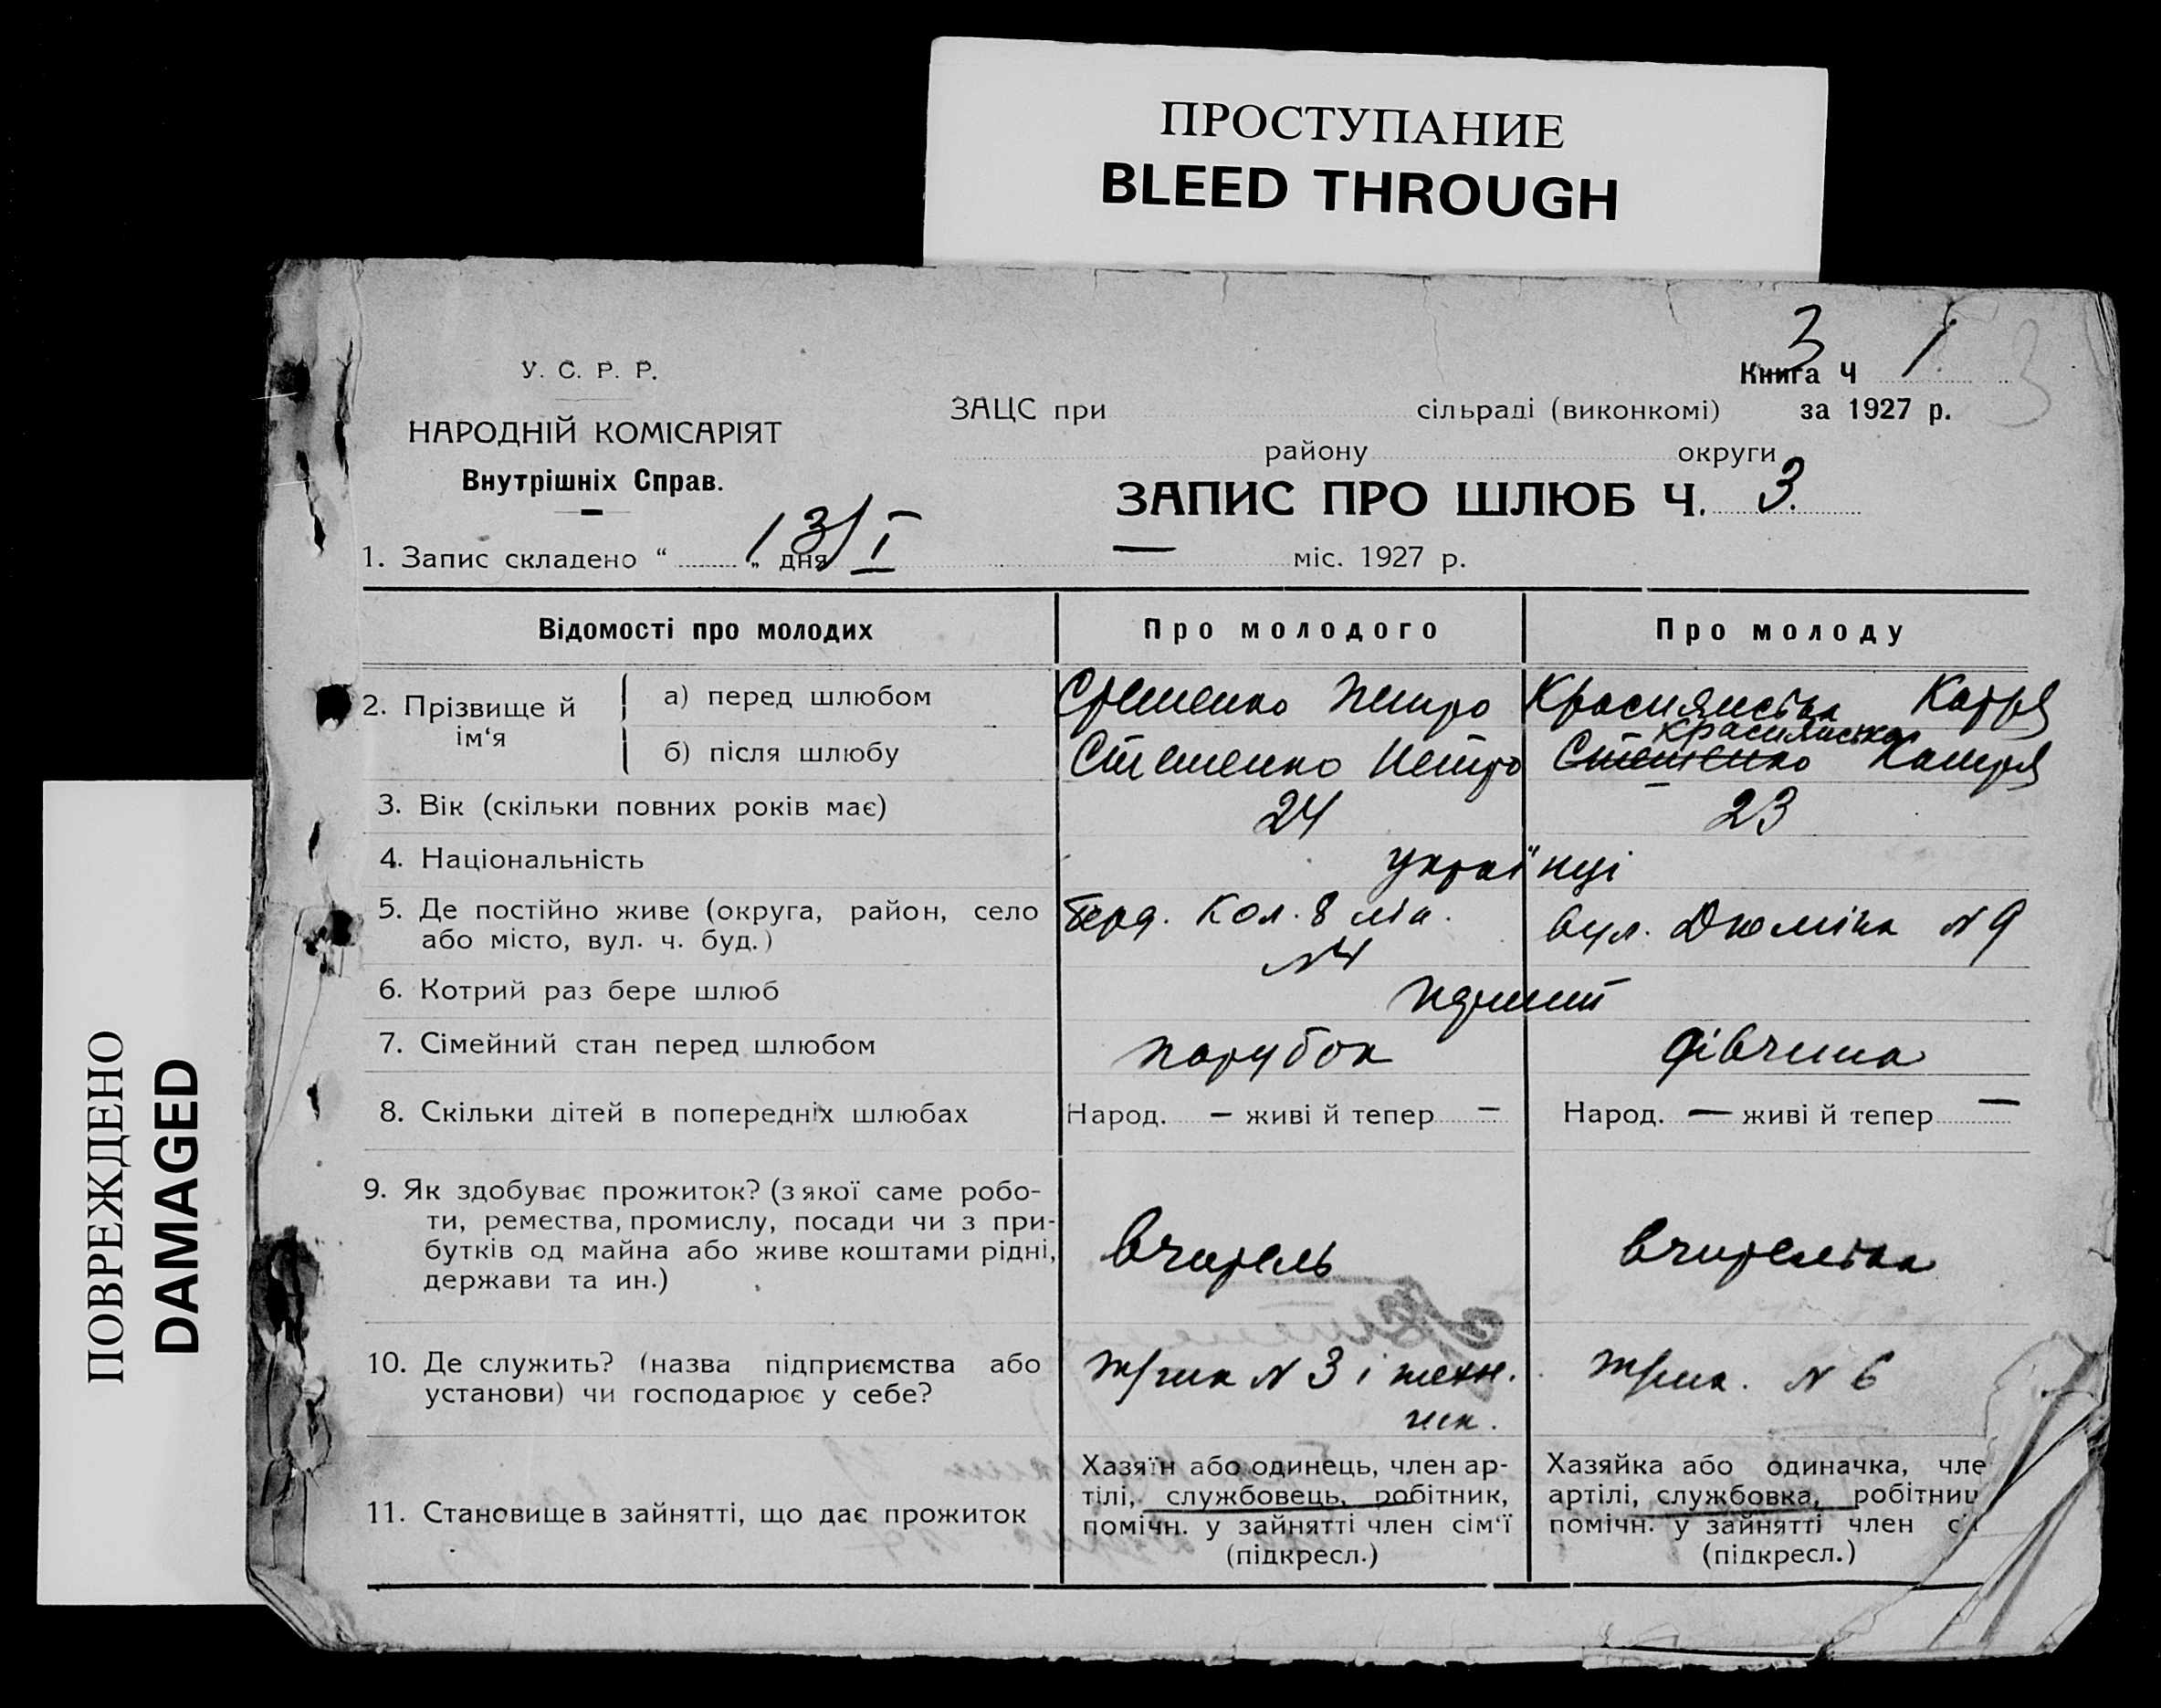 ПРОСТУПАНИЕ
BLEED THROUGH
ПОВРЕЖДЕНО
DAMAGED
3
У. С. Р. Р.
Книга Ч 1
3
НАРОДНІЙ КОМІСАРІЯТ
ЗАЦС при сільраді (виконкомі) за 1927 р.
Внутрішніх Справ.
району округи
ЗАПИС ПРО ШЛЮБ Ч. 3.
1. Запис складено “ „ дня 13/I — міс. 1927 р.
Відомості про молодих Про молодого Про молоду
2. Прізвище й ім‘я
а) перед шлюбом Стешенко Петро Катря
б) після шлюбу Стешенко Петро Стешенко Катря
3. Вік (скільки повних років має) 24 23
4. Національність українці
5. Де постійно живе (округа, район, село Кол. 8
або місто, вул. ч. буд.) вул. Дюміна N 9
N4
6. Котрий раз бере шлюб
7. Сімейний стан перед шлюбом парубок дівчина
8. Скільки дітей в попередніх шлюбах Народ. — живі й тепер — Народ. — живі й тепер —
9. Як здобуває прожиток? (з якої саме робо-
ти, ремества, промислу, посади чи з при-
бутків од майна або живе коштами рідні,
держави та ин.)
вчитель вчителька
10. Де служить? (назва підприємства або
установи) чи господарює у себе?
N 3 і N 6
11. Становище в зайнятті, що дає прожиток
Хазяїн або одинець, член ар-
тілі, службовець, робітник,
помічн. у зайнятті член сім‘ї
(підкресл.)
Хазяйка або одиначка, чле
артілі, службовка, робітниц
помічн. у зайнятті член сі
(підкресл.)